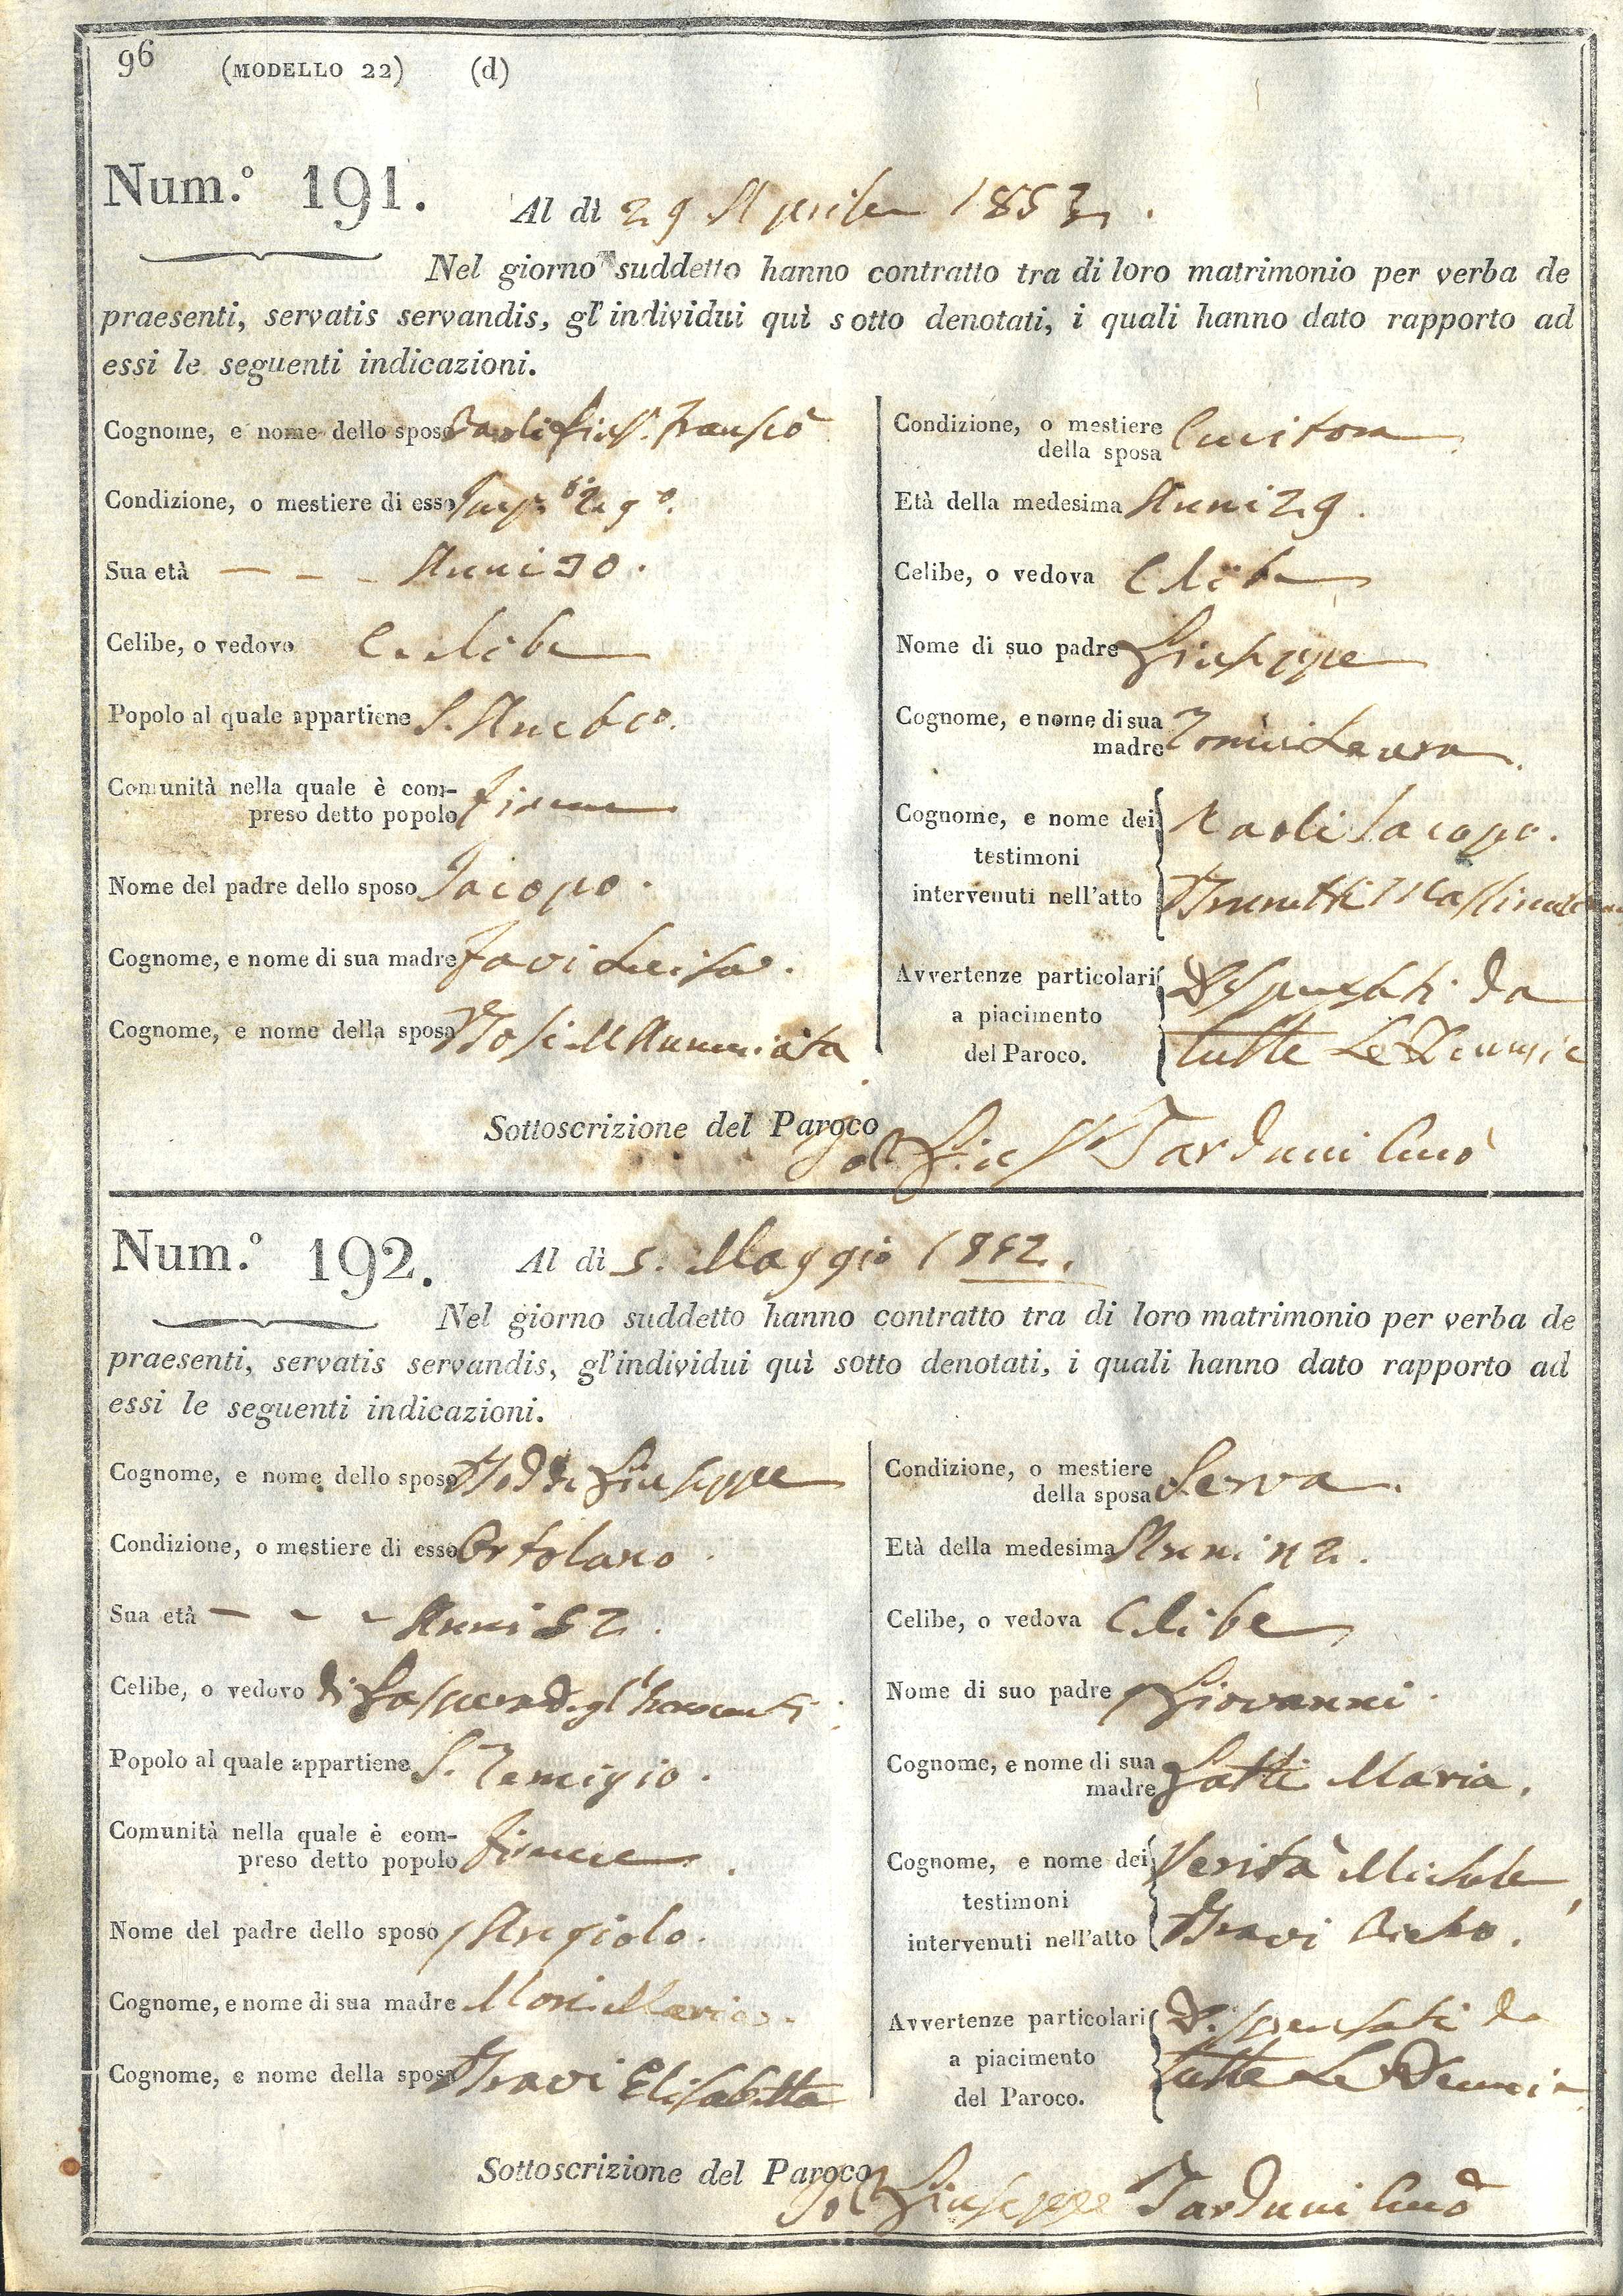 96 (MODELLO 22) (d)
Num.º 191. Al dì 29 Aprile 1852.
Nel giorno suddetto hanno contratto tra di loro matrimonio per verba de
praesenti, servatis servandis, gl'individui quì sotto denotati, i quali hanno dato rapporto ad
essi le seguenti indicazioni.
Cognome, e nome dello sposo Paoli Gius. Franscō
Condizione, o mestiere di esso
Sua età — – – Anni 30.
Celibe, o vedovo Celibe
Popolo al quale appartiene S. Ambco.
Comunità nella quale è com-
preso detto popolo Firenze
Nome del padre dello sposo Jacopo.
Cognome, e nome di sua madre Favi Luisa.
Cognome, e nome della sposa Bosi M Annunziata
Condizione, o mestiere
della sposa Cucitora
Età della medesima Anni 29.
Celibe, o vedova Celibe
Nome di suo padre Giuseppe
Cognome, e nome di sua
madre Laura
Cognome, e nome dei Paoli Jacopo.
testimoni
intervenuti nell'atto Brunetti Massimiliano
Avvertenze particolari Dispensati da
a piacimento tutte Le Denunzie
del Paroco.
Sottoscrizione del Paroco Gius. Tarduni Curō
Num.º 192. Al dì 5. Maggio 1852.
Nel giorno suddetto hanno contratto tra di loro matrimonio per verba de
praesenti, servatis servandis, gl'individui quì sotto denotati, i quali hanno dato rapporto ad
essi le seguenti indicazioni.
Cognome, e nome dello sposo Giuseppe
Condizione, o mestiere di esso Ortolano.
Sua età – – – Anni 52.
Celibe, o vedovo di Gaspera degl'Innocenti
Popolo al quale appartiene S. Remigio.
Comunità nella quale è com-
preso detto popolo Firenze.
Nome del padre dello sposo Angiolo.
Cognome, e nome di sua madre Mori Maria.
Cognome, e nome della sposa Bravi Elisabetta
Condizione, o mestiere
della sposa Serva.
Età della medesima Anni
Celibe, o vedova Celibe
Nome di suo padre Giovanni.
Cognome, e nome di sua
madre Gatti Maria.
Cognome, e nome dei Verità Michele,
testimoni
intervenuti nell'atto Bravi
Avvertenze particolari Dispensati da
a piacimento tutte Le Denunzie
del Paroco.
Sottoscrizione del Paroco Giuseppe Tarduni Curō